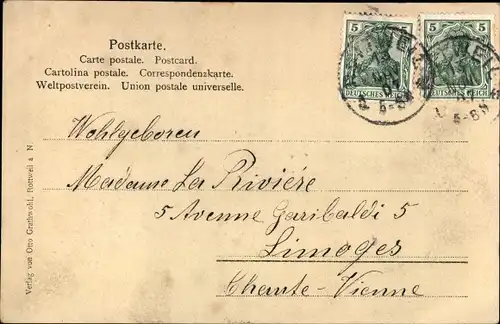 Postkarte.
Carte postale. Postcard.
Cartolina postale. Correspondenzkarte.
Weltpostverein. Union postale universelle.
5 5 5
DEUTSCHES REICH
Wohlgeboren
Madame La Rivière
5 Avenue Garibaldi 5
Limoges
Thaute-Vienne
Verlag von Otto Gerthwohl, Rottweil a N